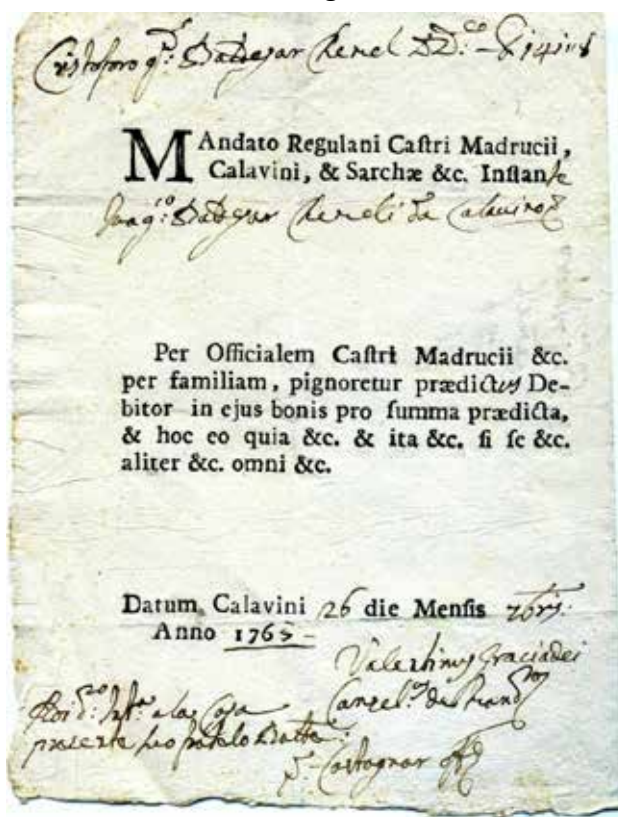 Cristoforo q.m Baldesar Chemel
MAndato Regulani Caſtri Madrucii,
Calavini, & Sarchæ &c. Inſtante
Baldesar Chemeli da Calavino
Per Officialem Caſtri Madrucii &c.
per familiam, pignoretur prædictus De-
bitor in ejus bonis pro ſumma prædicta,
& hoc eo quia &c. & ita &c. ſi ſe &c.
aliter &c. omni &c.
Datum Calavini 26 die Menſis 7bris.
Anno 1765
Valentinus Graciadei
Cancel. de Mand
a la Casa
presente suo fratelo Batta
Castagnar off